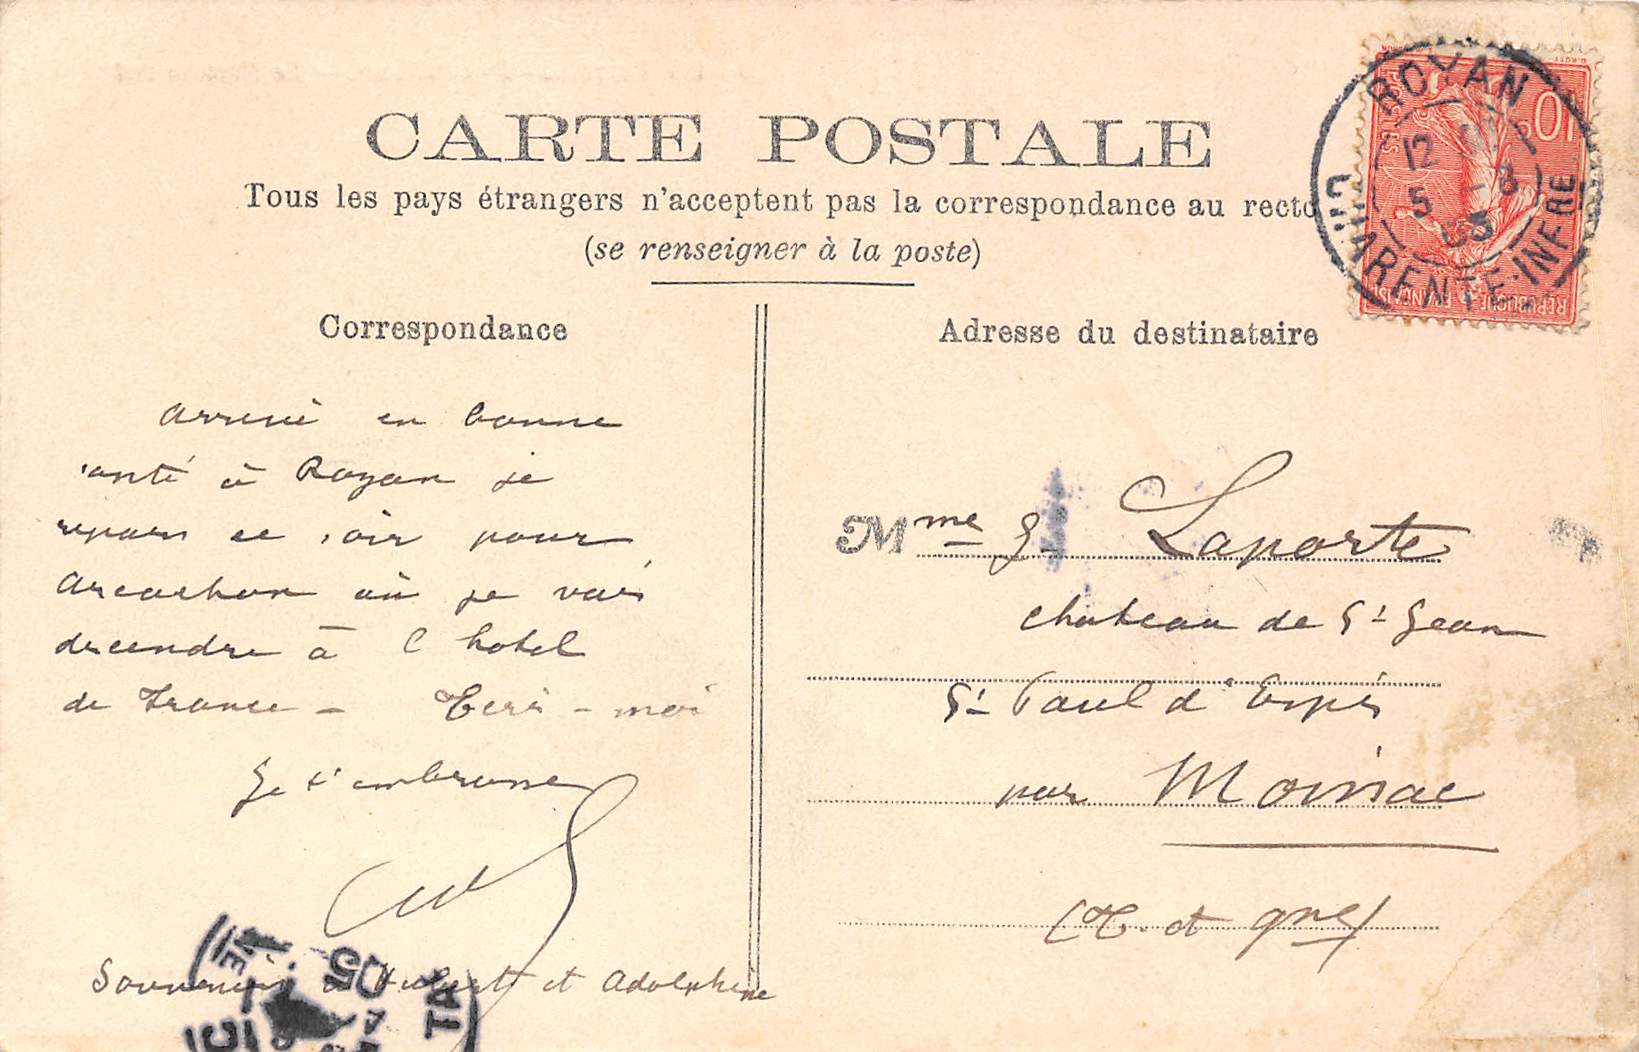 CARTE POSTALE
Tous les pays étrangers n'acceptent pas la correspondance au recto
(se renseigner à la poste)
Correspondance
arrivé en bonne
santé à Royan je
repars ce soir pour
Arcachon où je vais
descendre à l'hotel
de France - Ecris-moi
Je t'embrasse
Souvenir à Hubert et Adolphine
Adresse du destinataire
Mme G. Laporte
chateau de St Jean
St Paul d'Espis
par Moissac
(T. et Gne)
ROYAN
12
5 - 8
05
CHARENTE-INFRE
10c
POSTES
REPUBLIQUE FRANÇAISE